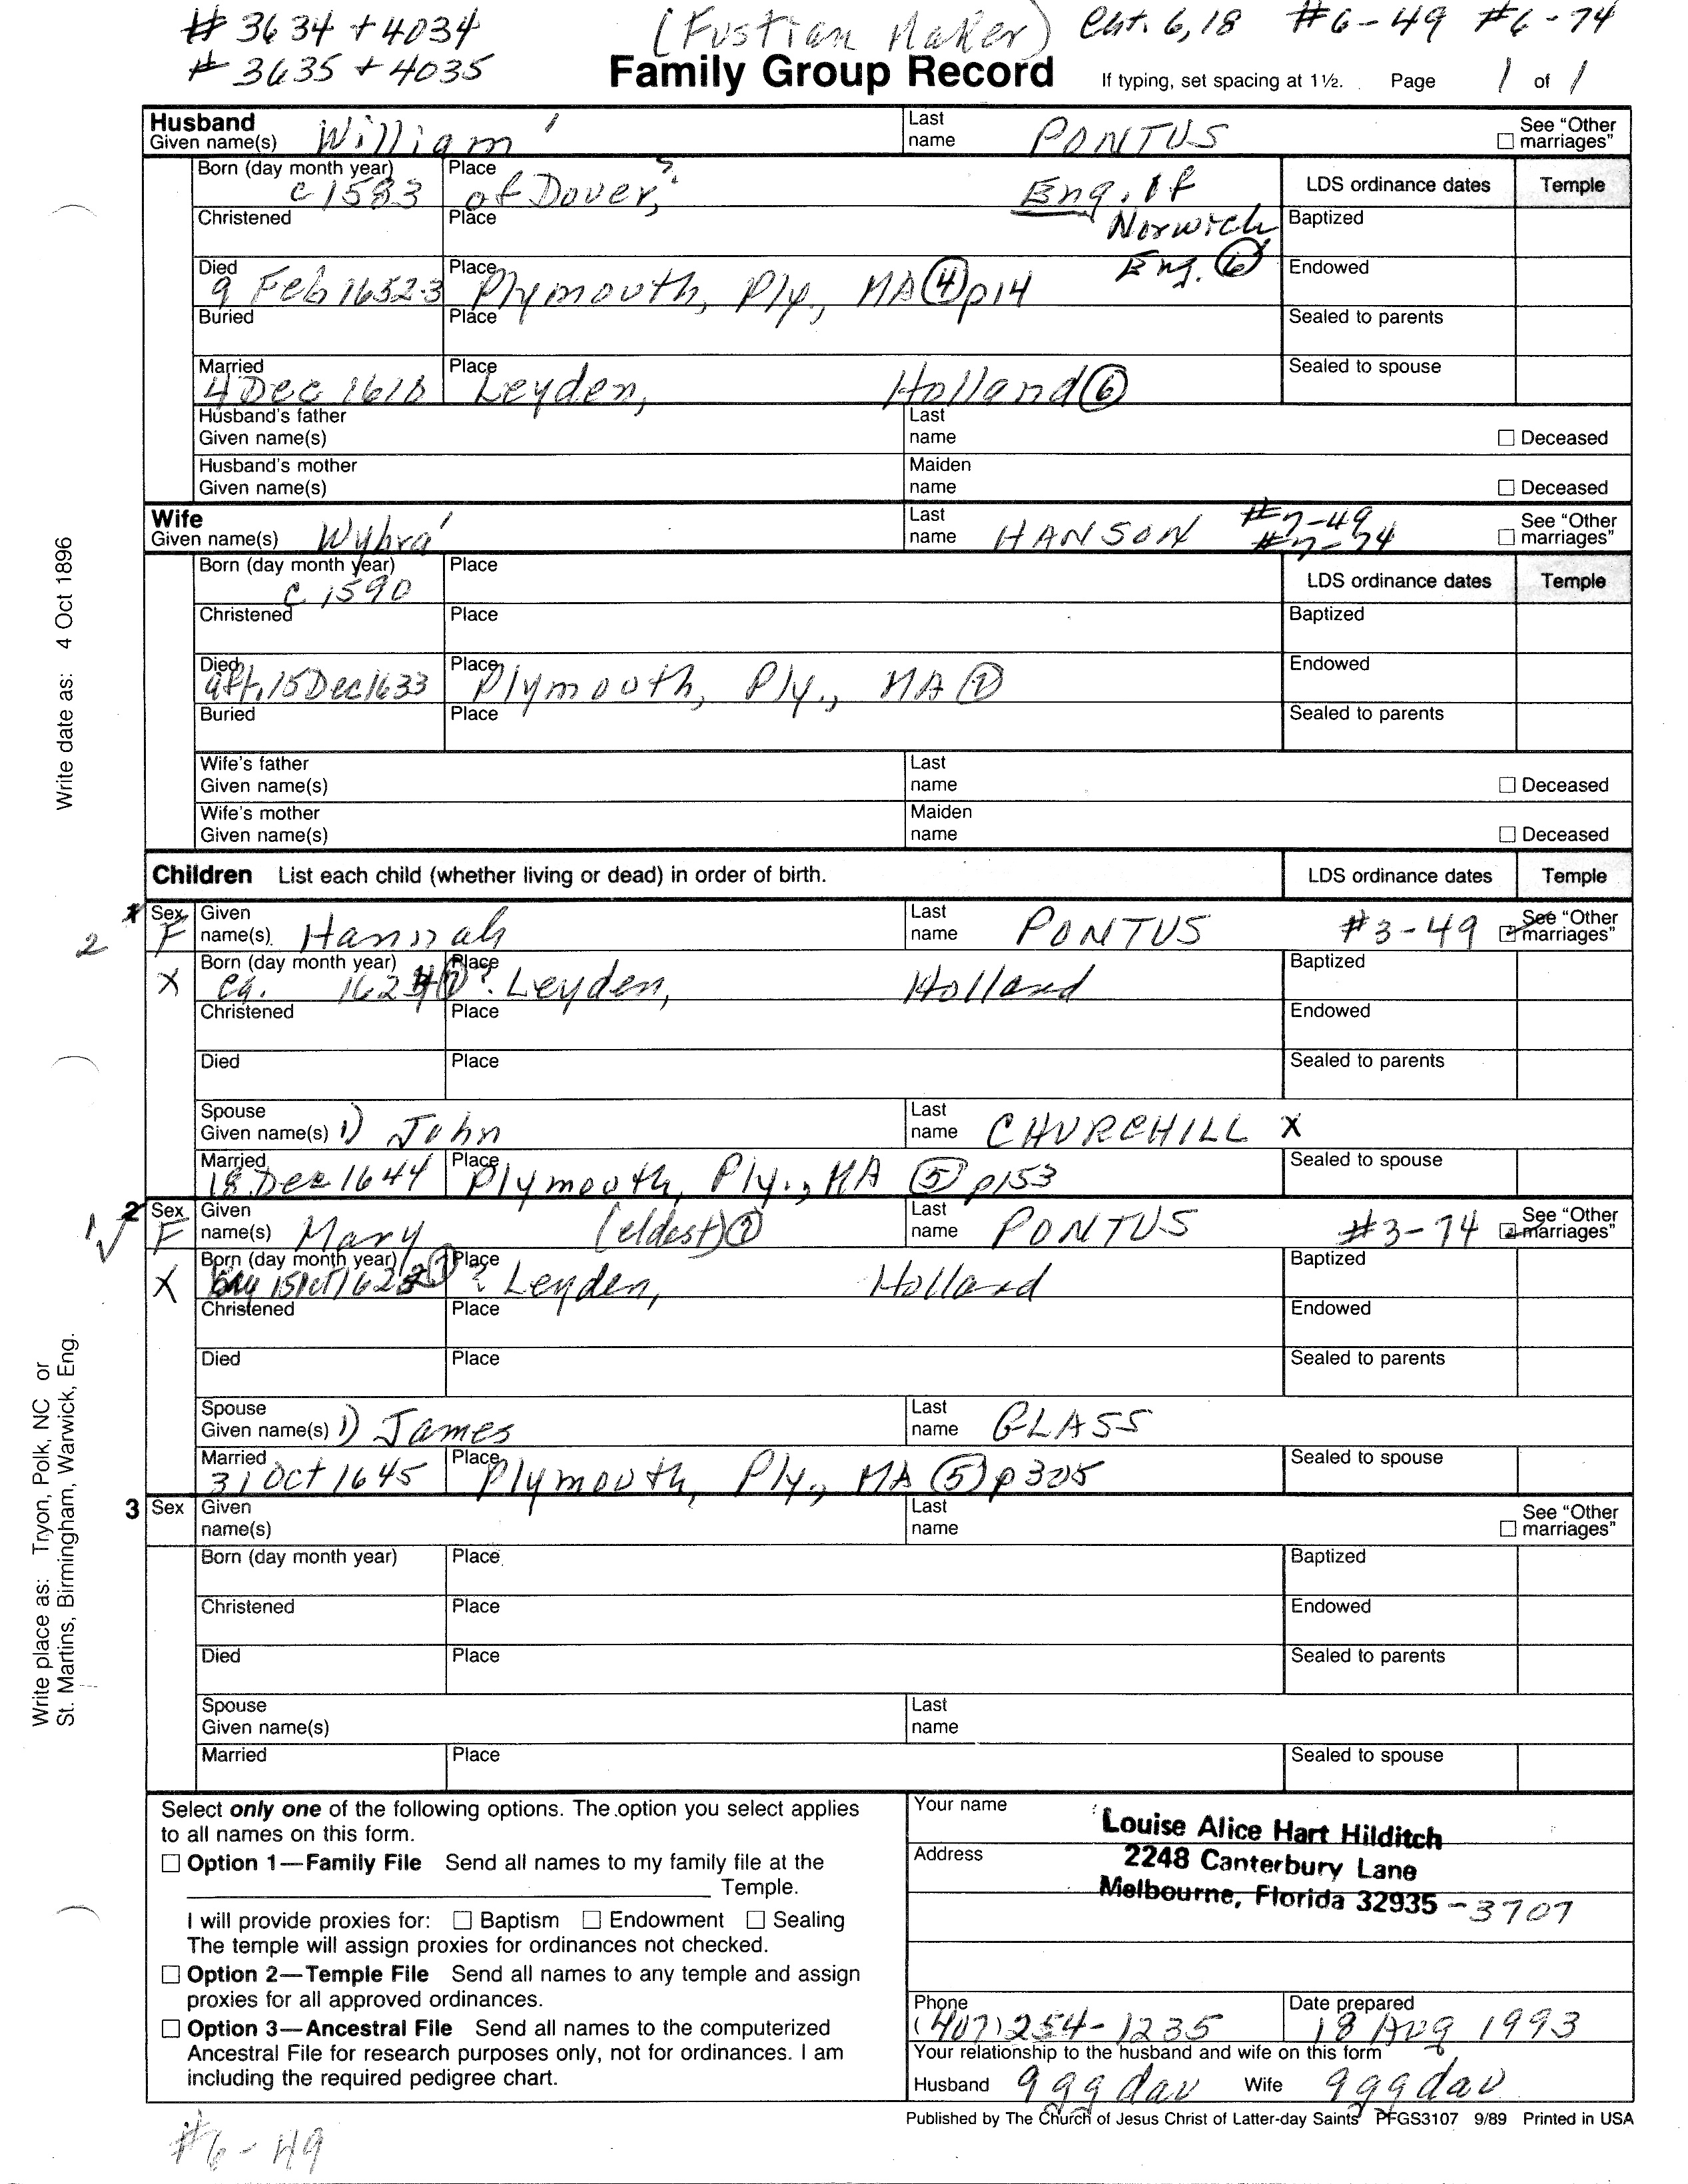 # 3634 + 4034 (Fustian Maker) Cht. 6, 18 #6-49 #6-74
# 3635 + 4035
Family Group Record If typing, set spacing at 1½. Page 1 of 1
Husband
Given name(s) William
Last name PONTUS
See "Other marriages"
Born (day month year) c 1583
Place of Dover, ? Eng. of Norwich Eng. 6
LDS ordinance dates Temple
Christened Place Baptized
Died 9 Feb 1652-3 Place Plymouth, Ply., MA 4 p14 Endowed
Buried Place Sealed to parents
Married 4 Dec 1610 Place Leyden, Holland 6 Sealed to spouse
Husband's father
Given name(s)
Last name
Deceased
Husband's mother
Given name(s)
Maiden name
Deceased
Wife
Given name(s) Wybra
Last name HANSON #7-49
#7-74
See "Other marriages"
Born (day month year) c 1590 Place
LDS ordinance dates Temple
Christened Place Baptized
Died aft. 15 Dec 1633 Place Plymouth, Ply., MA 1 Endowed
Buried Place Sealed to parents
Wife's father
Given name(s)
Last name
Deceased
Wife's mother
Given name(s)
Maiden name
Deceased
Children List each child (whether living or dead) in order of birth. LDS ordinance dates Temple
2
Sex F
Given name(s) Hannah
Last name PONTUS #3-49
See "Other marriages"
X
Born (day month year) ca. 162
Place ? Leyden, Holland
Baptized
Christened Place Endowed
Died Place Sealed to parents
Spouse
Given name(s) 1) John
Last name CHURCHILL X
Married 18 Dec 1644 Place Plymouth, Ply., MA 5 p153 Sealed to spouse
2
1
Sex F
Given name(s) Mary (eldest)
Last name PONTUS #3-74
See "Other marriages"
X
Born (day month year)
Place ? Leyden, Holland
Baptized
Christened Place Endowed
Died Place Sealed to parents
Spouse
Given name(s) 1) James
Last name GLASS
Married 31 Oct 1645 Place Plymouth, Ply., MA 5 p305 Sealed to spouse
3 Sex
Given name(s)
Last name
See "Other marriages"
Born (day month year) Place Baptized
Christened Place Endowed
Died Place Sealed to parents
Spouse
Given name(s)
Last name
Married Place Sealed to spouse
Write date as: 4 Oct 1896
Write place as: Tryon, Polk, NC or
St. Martins, Birmingham, Warwick, Eng.
Select only one of the following options. The option you select applies
to all names on this form.
Option 1—Family File Send all names to my family file at the
Temple.
I will provide proxies for: Baptism Endowment Sealing
The temple will assign proxies for ordinances not checked.
Option 2—Temple File Send all names to any temple and assign
proxies for all approved ordinances.
Option 3—Ancestral File Send all names to the computerized
Ancestral File for research purposes only, not for ordinances. I am
including the required pedigree chart.
Your name Louise Alice Hart Hilditch
Address 2248 Canterbury Lane
Melbourne, Florida 32935 -3707
Phone (407) 254-1235
Date prepared 18 Aug 1993
Your relationship to the husband and wife on this form
Husband 9 gg dau Wife 9 gg dau
Published by The Church of Jesus Christ of Latter-day Saints PFGS3107 9/89 Printed in USA
#6-49